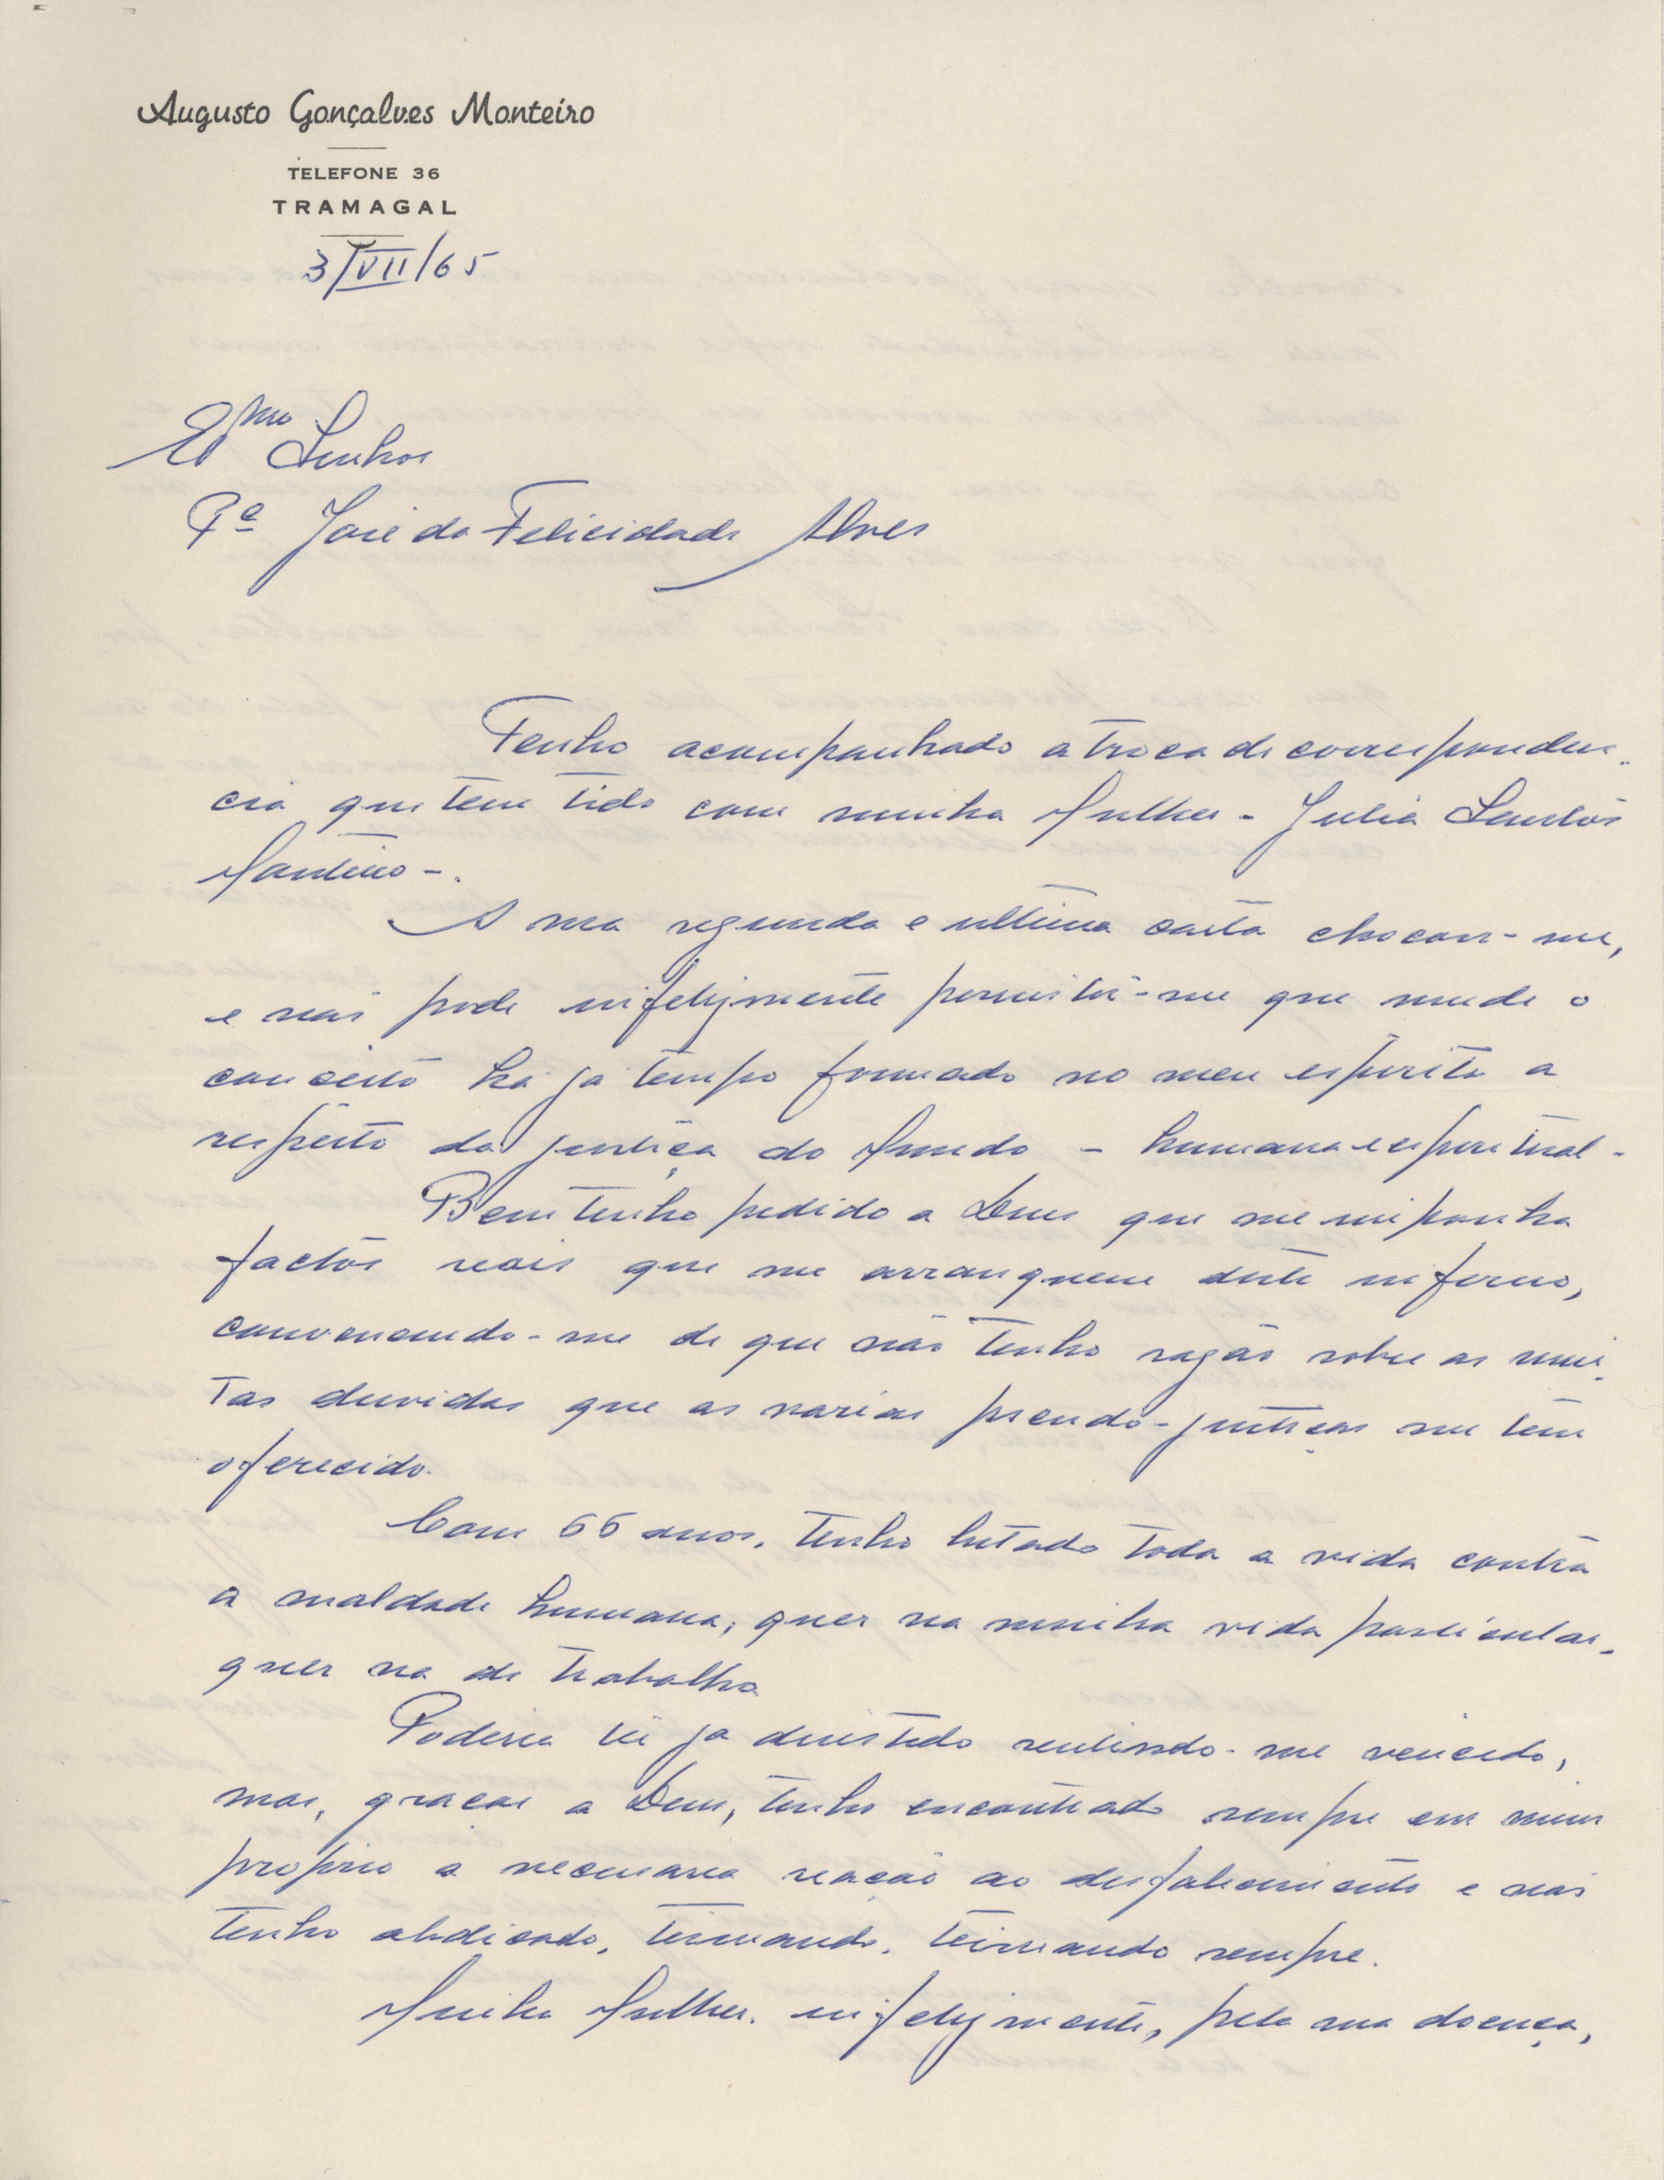 Augusto Gonçalves Monteiro
TELEFONE 36
TRAMAGAL
3/VII/65
Exmo Senhor
Pe José da Felicidade Alves
Tenho acompanhado a troca de corresponden-
cia que tem tido com minha Mulher - Julia Santos
Monteiro -.
A sua segunda e ultima carta chocou-me,
e não pode infelizmente permitir-me que mude o
conceito há já tempo formado no meu espirito a
respeito da justiça do Mundo - humana e espiritual -
Bem tenho pedido a Deus que me imponha
factos reais que me arranquem deste inferno,
convencendo-me de que não tenho razão sobre as mui-
tas duvidas que as varias pseudo-justiças me tem
oferecido.
Com 66 anos, tenho lutado toda a vida contra
a maldade humana, quer na minha vida particular,
quer na de trabalho
Poderia ter já desistido sentindo-me vencido,
mas, graças a Deus, tenho encontrado sempre em mim
proprio a necessaria reação ao desfalecimento e não
tenho abdicado, teimando, teimando sempre.
Minha Mulher, infelizmente, pela sua doença,